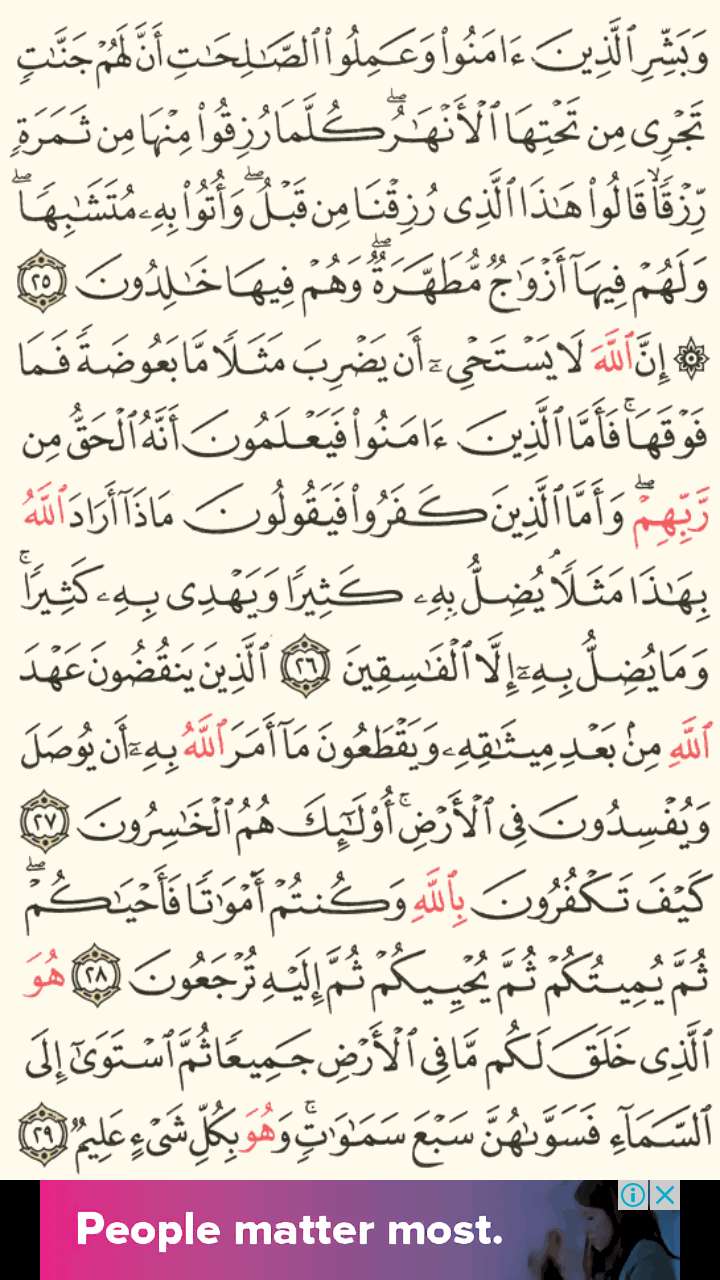 وَبَشِّرِ ٱلَّذِينَ ءَامَنُوا۟ وَعَمِلُوا۟ ٱلصَّـٰلِحَـٰتِ أَنَّ لَهُمْ جَنَّـٰتٍ
تَجْرِى مِن تَحْتِهَا ٱلْأَنْهَـٰرُ ۖ كُلَّمَا رُزِقُوا۟ مِنْهَا مِن ثَمَرَةٍ
رِّزْقًا ۙ قَالُوا۟ هَـٰذَا ٱلَّذِى رُزِقْنَا مِن قَبْلُ ۖ وَأُتُوا۟ بِهِۦ مُتَشَـٰبِهًا ۖ
وَلَهُمْ فِيهَآ أَزْوَٰجٌ مُّطَهَّرَةٌ ۖ وَهُمْ فِيهَا خَـٰلِدُونَ ٢٥
۞ إِنَّ ٱللَّهَ لَا يَسْتَحْىِۦٓ أَن يَضْرِبَ مَثَلًا مَّا بَعُوضَةً فَمَا
فَوْقَهَا ۚ فَأَمَّا ٱلَّذِينَ ءَامَنُوا۟ فَيَعْلَمُونَ أَنَّهُ ٱلْحَقُّ مِن
رَّبِّهِمْ ۖ وَأَمَّا ٱلَّذِينَ كَفَرُوا۟ فَيَقُولُونَ مَاذَآ أَرَادَ ٱللَّهُ
بِهَـٰذَا مَثَلًا ۘ يُضِلُّ بِهِۦ كَثِيرًا وَيَهْدِى بِهِۦ كَثِيرًا ۚ
وَمَا يُضِلُّ بِهِۦٓ إِلَّا ٱلْفَـٰسِقِينَ ٢٦ ٱلَّذِينَ يَنقُضُونَ عَهْدَ
ٱللَّهِ مِنۢ بَعْدِ مِيثَـٰقِهِۦ وَيَقْطَعُونَ مَآ أَمَرَ ٱللَّهُ بِهِۦٓ أَن يُوصَلَ
وَيُفْسِدُونَ فِى ٱلْأَرْضِ ۚ أُو۟لَـٰٓئِكَ هُمُ ٱلْخَـٰسِرُونَ ٢٧
كَيْفَ تَكْفُرُونَ بِٱللَّهِ وَكُنتُمْ أَمْوَٰتًا فَأَحْيَـٰكُمْ ۖ
ثُمَّ يُمِيتُكُمْ ثُمَّ يُحْيِيكُمْ ثُمَّ إِلَيْهِ تُرْجَعُونَ ٢٨ هُوَ
ٱلَّذِى خَلَقَ لَكُم مَّا فِى ٱلْأَرْضِ جَمِيعًا ثُمَّ ٱسْتَوَىٰٓ إِلَى
ٱلسَّمَآءِ فَسَوَّىٰهُنَّ سَبْعَ سَمَـٰوَٰتٍ ۚ وَهُوَ بِكُلِّ شَىْءٍ عَلِيمٌ ٢٩
People matter most.